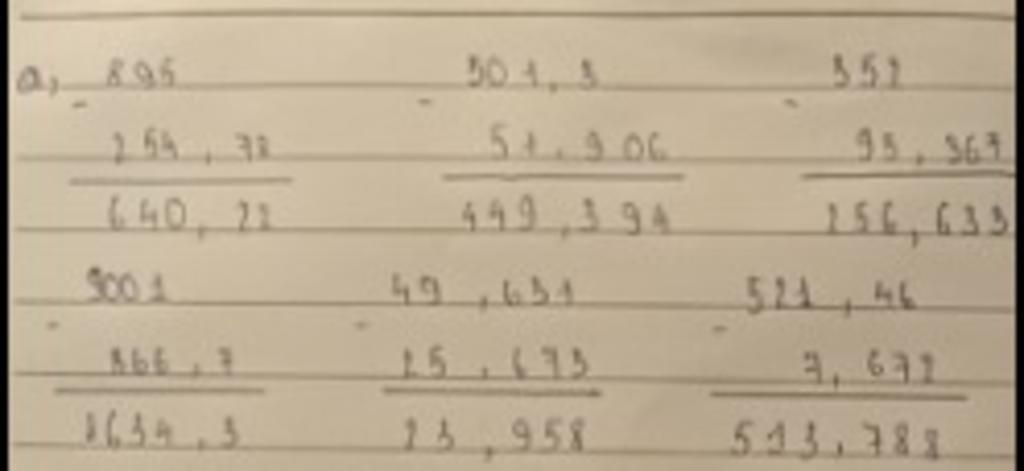 a, 895 501,3 352
- - -
254,78 51,906 95,367
640,22 449,394 256,633
9001 49,631 521,46
- - -
366,7 25,673 7,672
8634,3 23,958 513,788